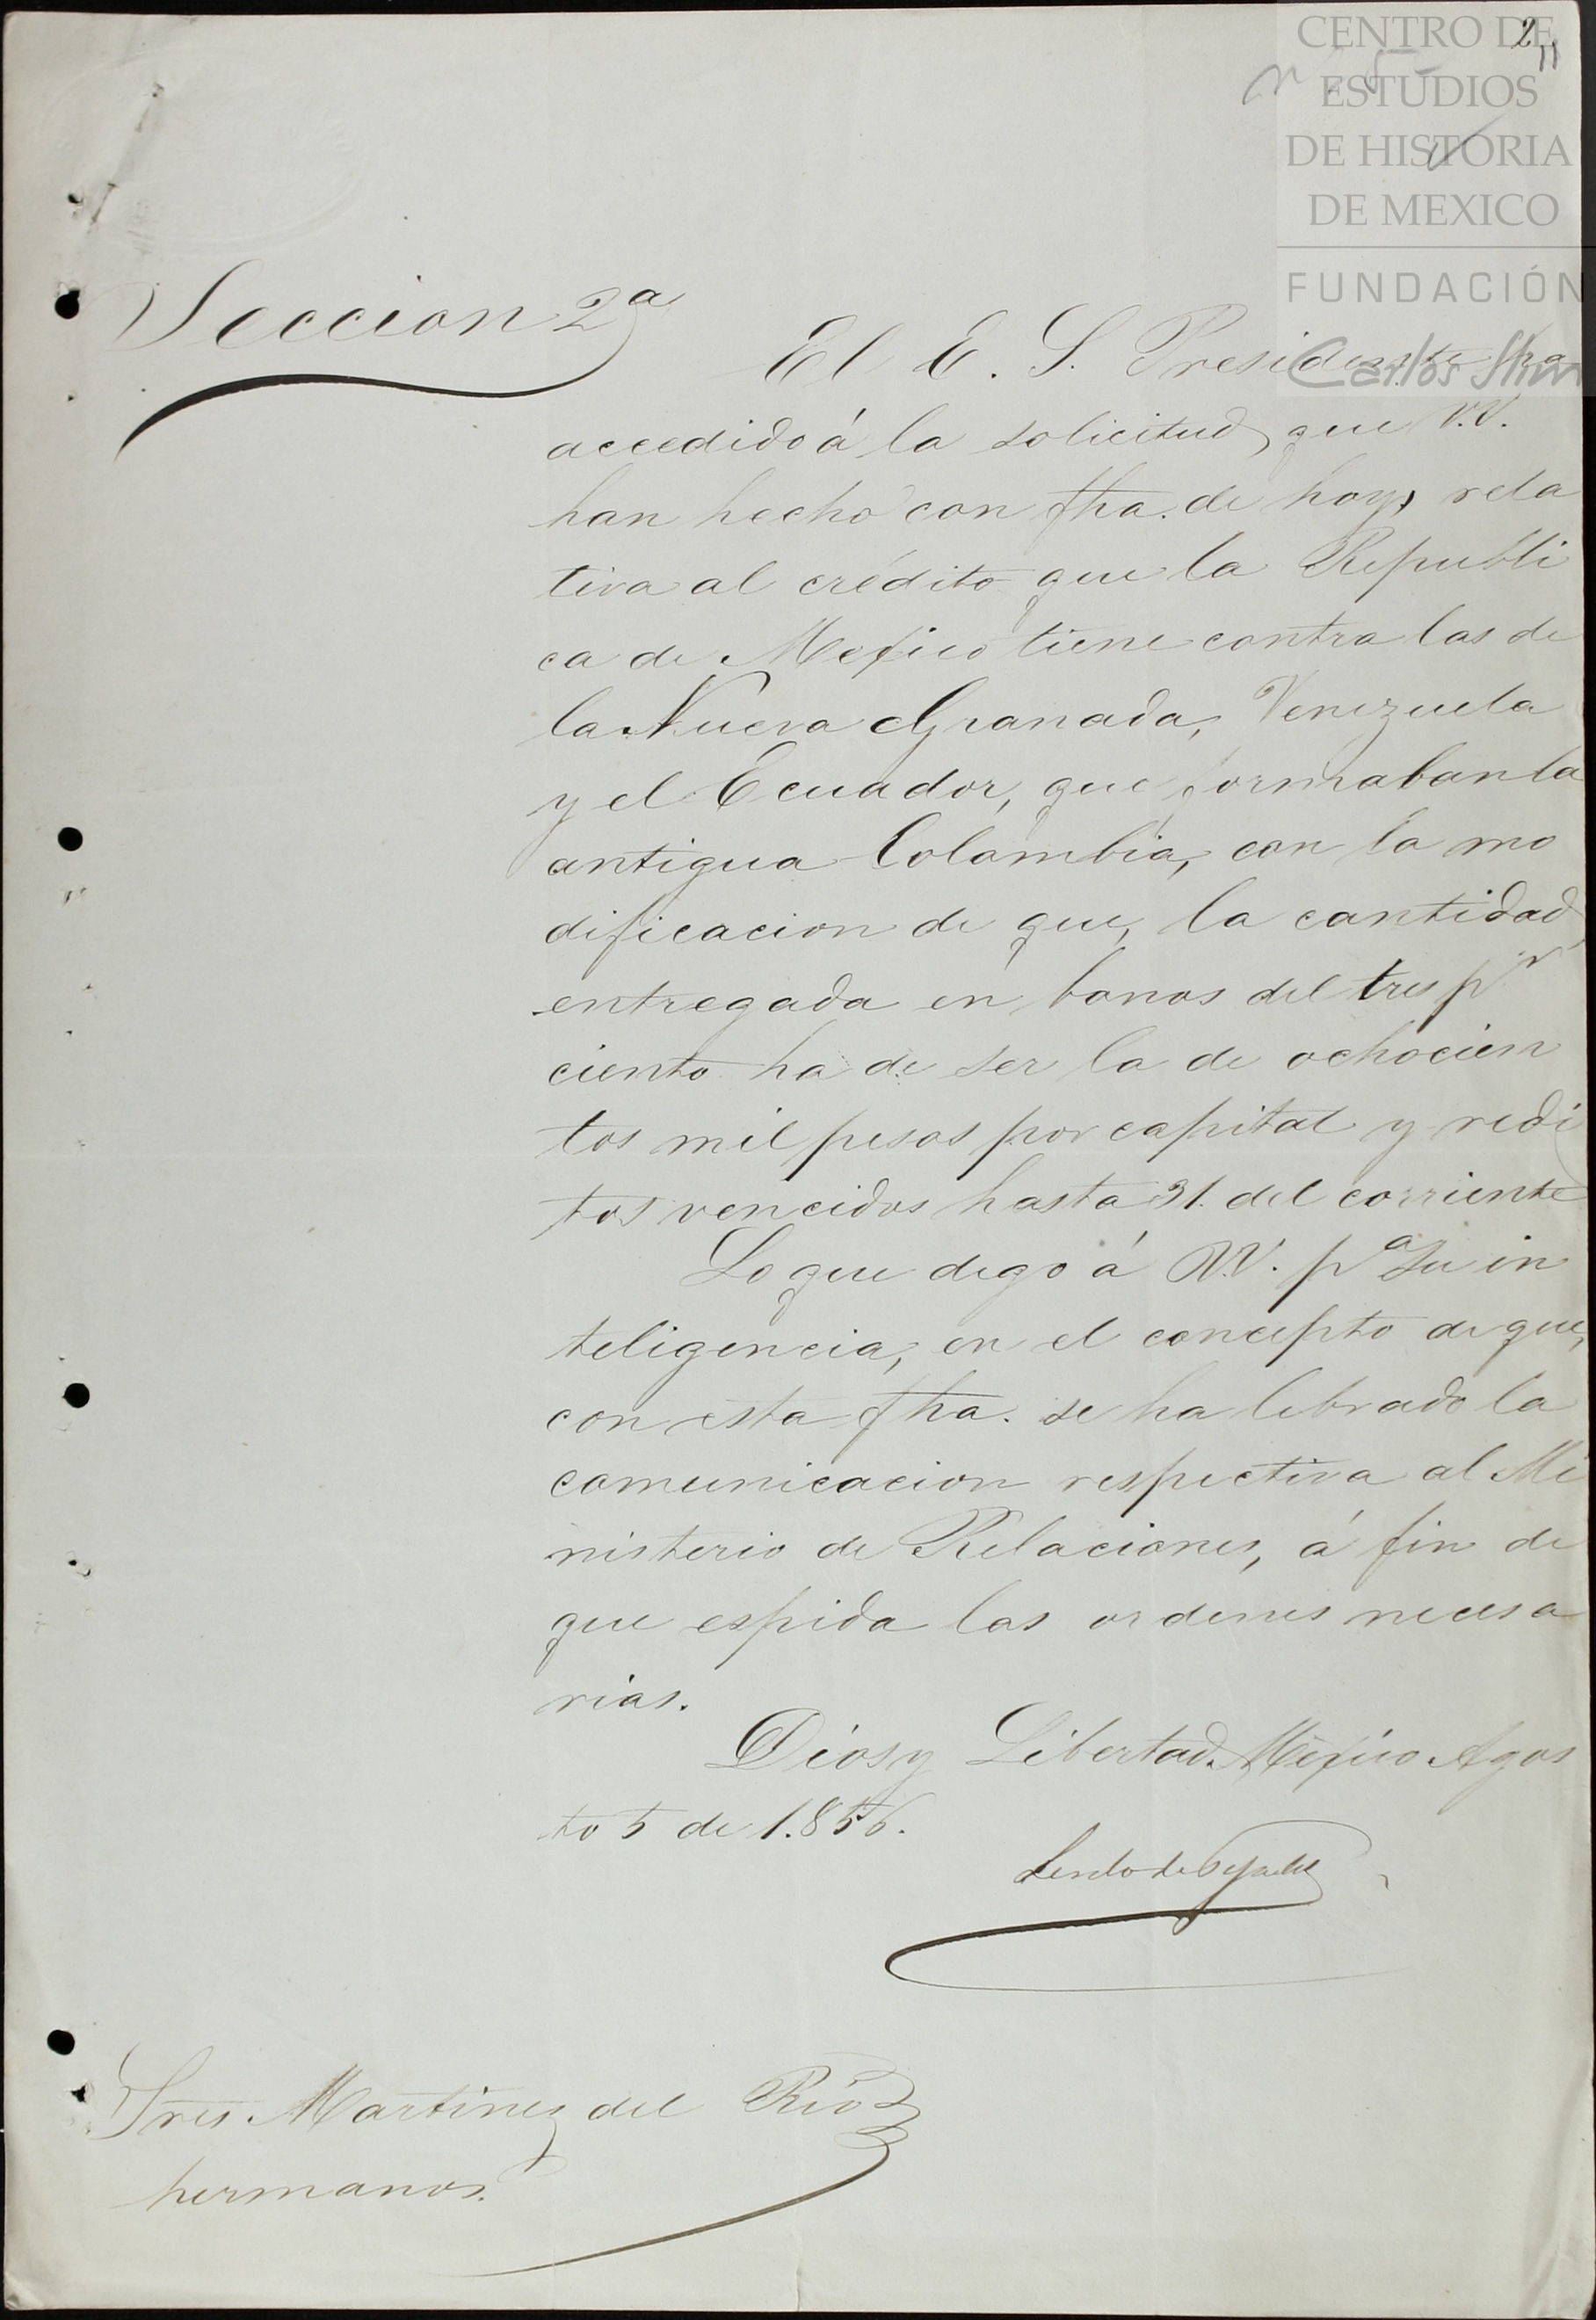 2
11
CENTRO DE
ESTUDIOS
DE HISTORIA
DE MEXICO
FUNDACIÓN
Carlos Slim
Seccion 2a
El E. S. Presidente ha
accedido á la solicitud que V.V.
han hecho con fha. de hoy, rela
tiva al crédito que la Republi
ca de Mexico tiene contra las de
la Nueva Granada, Venezuela
y el Ecuador, que formaban la
antigua Colombia, con la mo
dificacion de que, la cantidad
entregada en bonos del tres pr
ciento ha de ser la de ochocien
tos mil pesos por capital y redi
tos vencidos hasta 31. del corriente
Lo que digo á V.V. pa su in
teligencia, en el concepto de que,
con esta fha. se ha librado la
comunicacion respectiva al Mi
nisterio de Relaciones, á fin de
que espida las ordenes necesa
rias.
Dios y Libertad. Mexico Agos
to 5 de 1.856.
Lerdo de Tejada
Sres. Martinez del Rio
hermanos.